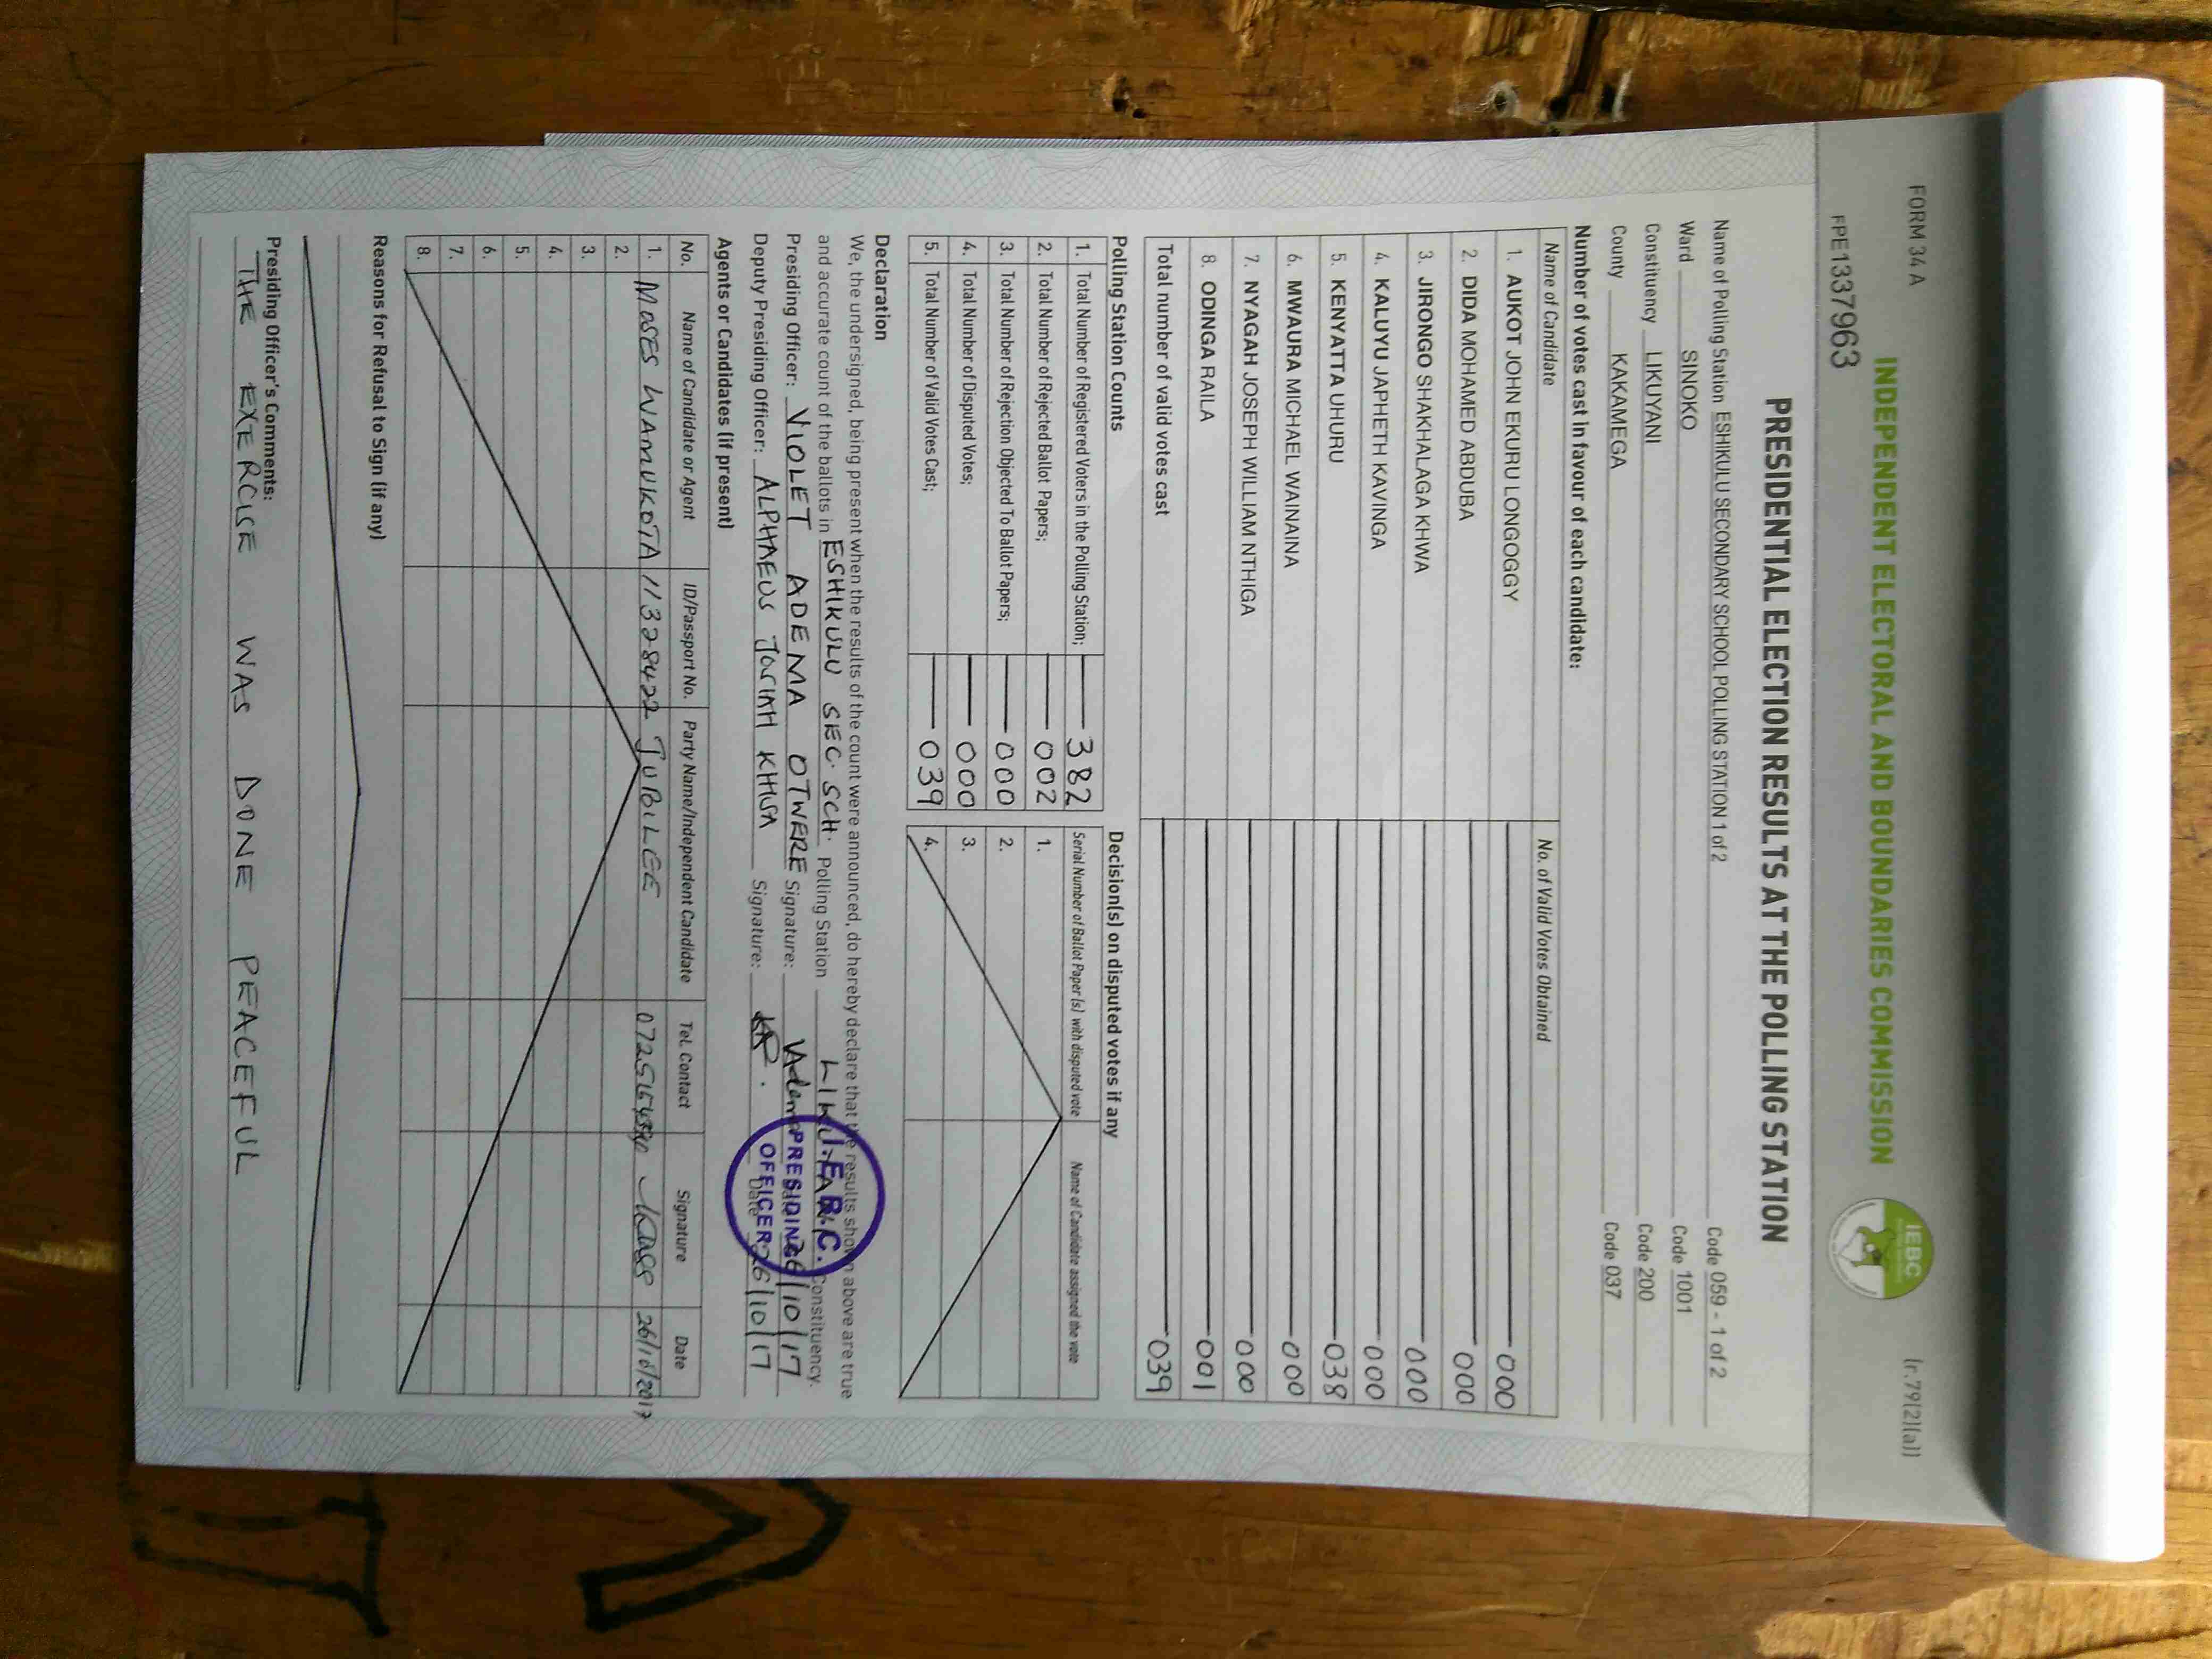 FORM 34 A
(r.79(2)(a))
FPE1337963
INDEPENDENT ELECTORAL AND BOUNDARIES COMMISSION
IEBC
PRESIDENTIAL ELECTION RESULTS AT THE POLLING STATION
Name of Polling Station ESHIKULU SECONDARY SCHOOL POLLING STATION 1 of 2 Code 059 - 1 of 2
Ward SINOKO Code 1001
Constituency LIKUYANI Code 200
County KAKAMEGA Code 037
Number of votes cast in favour of each candidate:
Name of Candidate No. of Valid Votes Obtained
1. AUKOT JOHN EKURU LONGOGGY 000
2. DIDA MOHAMED ABDUBA 000
3. JIRONGO SHAKHALAGA KHWA 000
4. KALUYU JAPHETH KAVINGA 000
5. KENYATTA UHURU 038
6. MWAURA MICHAEL WAINAINA 000
7. NYAGAH JOSEPH WILLIAM NTHIGA 000
8. ODINGA RAILA 001
Total number of valid votes cast 039
Polling Station Counts
1. Total Number of Registered Voters in the Polling Station; 382
2. Total Number of Rejected Ballot Papers; 002
3. Total Number of Rejection Objected To Ballot Papers; 000
4. Total Number of Disputed Votes; 000
5. Total Number of Valid Votes Cast; 039
Decision(s) on disputed votes if any
Serial Number of Ballot Paper(s) with disputed vote Name of Candidate assigned the vote
1.
2.
3.
4.
Declaration
We, the undersigned, being present when the results of the count were announced, do hereby declare that the results shown above are true
and accurate count of the ballots in ESHIKULU SEC. SCH. Polling Station Constituency.
Presiding Officer: VIOLET ADEMA OTWERE Signature: 26/10/17
Deputy Presiding Officer: ALPHAEUS JOSIAH KHHSA Signature: Date 26/10/17
I.E.B.C.
PRESIDING
OFFICER
Agents or Candidates (if present)
No. Name of Candidate or Agent ID/Passport No. Party Name/Independent Candidate Tel. Contact Signature Date
1. MOSES WAMUKOTA 11328422 JUBILEE 26/10/2017
2.
3.
4.
5.
6.
7.
8.
Reasons for Refusal to Sign (if any)
Presiding Officer's Comments:
THE EXERCISE WAS DONE PEACEFUL